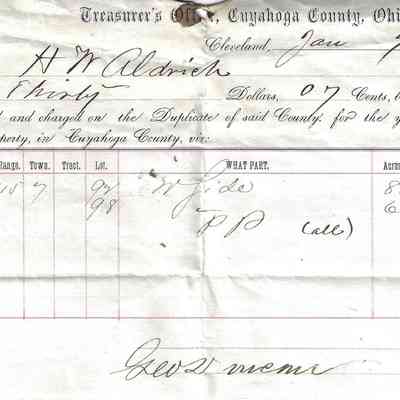 Treasurer's Office, Cuyahoga County, Ohi
Cleveland, Jan
H W Aldrich
Thirty Dollars, 07 Cents, b
d and charged on the Duplicate of said County for the y
operty, in Cuyahoga County, viz:
Range. Town. Tract. Lot. WHAT PART. Acres
15 7 97 W Side 8
98 P P (all) 6
Geo